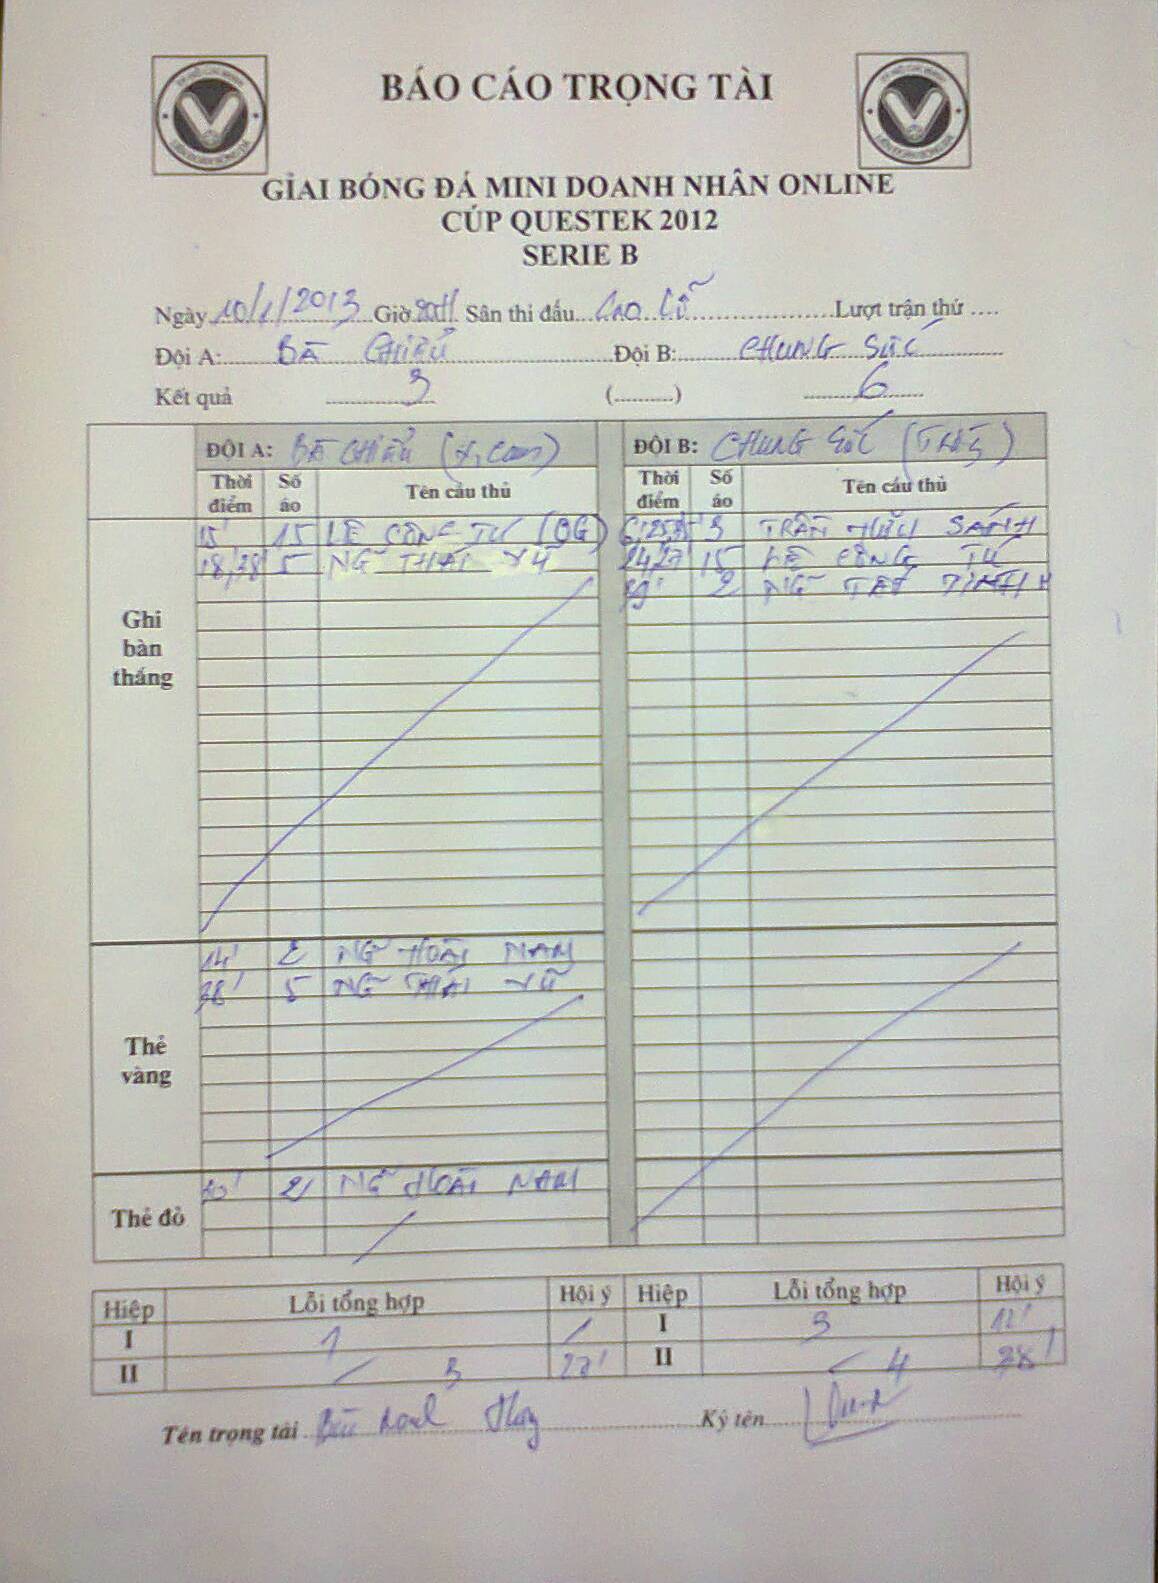 BÁO CÁO TRỌNG TÀI
GIẢI BÓNG ĐÁ MINI DOANH NHÂN ONLINE
CÚP QUESTEK 2012
SERIE B
Ngày 10/1/2013 Giờ 20H Sân thi đấu Cao Lỗ Lượt trận thứ ....
Đội A: BÀ CHIỂU Đội B: CHUNG SỨC
Kết quả 3 (..........) 6
ĐỘI A: BÀ CHIỂU (X, Cam) ĐỘI B: CHUNG SỨC (Trắng)
Thời điểm Số áo Tên cầu thủ Thời điểm Số áo Tên cầu thủ
Ghi bàn thắng
15' 15 LÊ CÔNG TÚ (OG) 3 TRẦN HỮU SÁNH
18, 28 5 NG~ THÁI VŨ 24, 27 15 LÊ CÔNG TÚ
39' 2 NG~ TẤT
Thẻ vàng
14' 2 NG~ HOÀI NAM
38' 5 NG~ THÁI VŨ
Thẻ đỏ
2 NG~ HOÀI NAM
Hiệp Lỗi tổng hợp Hội ý Hiệp Lỗi tổng hợp Hội ý
I 1 / I 3 12'
II 3 27' II 4 38'
Tên trọng tài Ký tên